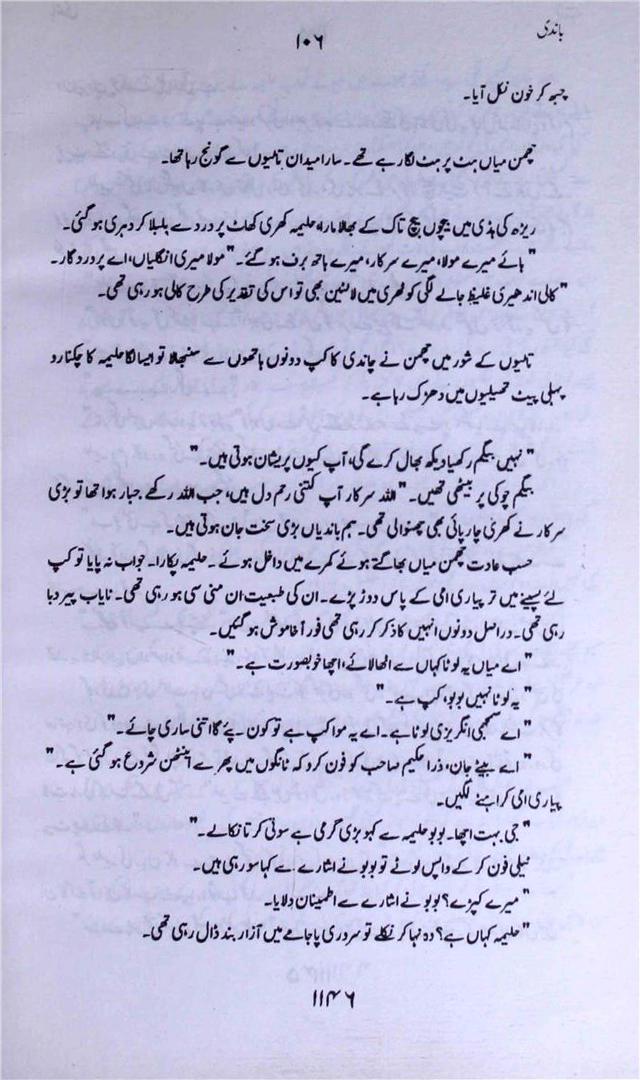 باندی
۱۰۶
چبھ کر خون نکل آیا۔
چھمن میاں ہٹ پر ہٹ لگا رہے تھے۔ سارا میدان تالیوں سے گونج رہا تھا۔
ریڑھ کی ہڈی میں بیچوں بیچ تاک کے بھالا مارا، حلیمہ کھری کھاٹ پر درد سے بلبلا کر دہری ہو گئی۔
"ہائے میرے مولا، میرے سرکار، میرے ہاتھ برف ہو گئے۔" مولا میری انگلیاں، اے پروردگار۔
"کالی اندھیری غلیظ جالے لگی کوٹھری میں لالٹین بھی تو اس کی تقدیر کی طرح کالی ہو رہی تھی۔
تالیوں کے شور میں چھمن نے چاندی کا کپ دونوں ہاتھوں سے سنبھالا تو ایسا لگا حلیمہ کا چکنا رو
پہلی پیٹ ہتھیلیوں میں دھڑک رہا ہے۔
"نہیں بیگم رکھیا دیکھ بھال کرے گی، آپ کیوں پریشان ہوتی ہیں۔"
بیگم چوکی پر بیٹھی تھیں۔ "اللہ سرکار آپ کتنی رحم دل ہیں، جب اللہ رکھے جبار ہوا تھا تو بڑی
سرکار نے کھری چارپائی بھی چھنوالی تھی۔ ہم باندیاں بڑی سخت جان ہوتی ہیں۔
حسب عادت چھمن میاں بھاگتے ہوئے کمرے میں داخل ہوئے۔ حلیمہ پکارا۔ جواب نہ پایا تو کپ
لئے پسینے میں تر پیاری امی کے پاس دوڑ پڑے۔ ان کی طبیعت ان منی سی ہو رہی تھی۔ نایاب پیر دبا
رہی تھی۔ دراصل دونوں انہیں کا ذکر کر رہی تھی فوراً خاموش ہو گئیں۔
"اے میاں یہ لوٹا کہاں سے اٹھا لائے، اچھا خوبصورت ہے۔"
"یہ لوٹا نہیں بوبو، کپ ہے۔"
"اے سمجھی انگریزی لوٹا ہے۔ اے یہ موا کپ ہے تو کون پئے گا اتنی ساری چائے۔"
"اے بیٹے جان، ذرا حکیم صاحب کو فون کر دو کہ ٹانگوں میں پھر سے اینٹھن شروع ہو گئی ہے۔"
پیاری امی کراہنے لگیں۔
"جی بہت اچھا۔ بوبو حلیمہ سے کہو بڑی گرمی ہے سوتی کرتا نکالے۔"
ٹیلی فون کر کے واپس لوٹے تو بوبو نے اشارے سے کہا سو رہی ہیں۔
"میرے کپڑے؟ بوبو نے اشارے سے اطمینان دلایا۔
"حلیمہ کہاں ہے؟ وہ نہا کر نکلے تو سروری پاجامے میں آزار بند ڈال رہی تھی۔
۱۱۴۶